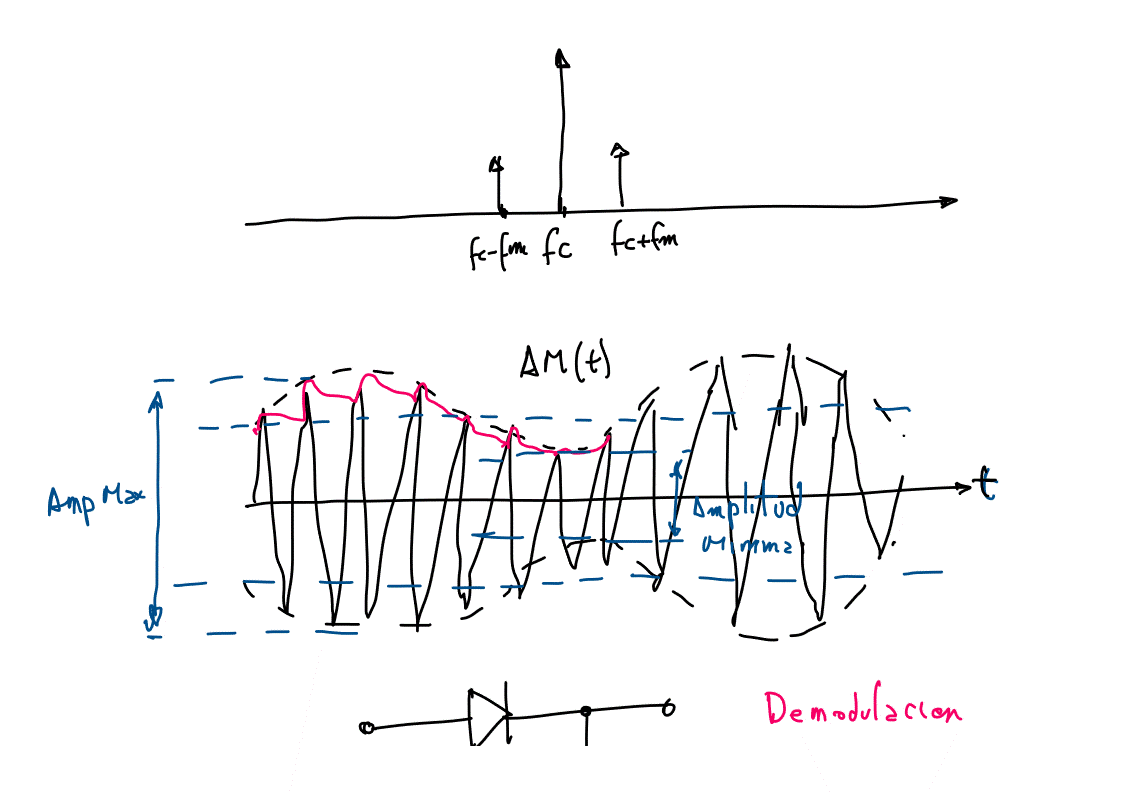 fc-fm fc fc+fm
AM(t)
Amp Max
t
Amplitud
Minima
Demodulacion